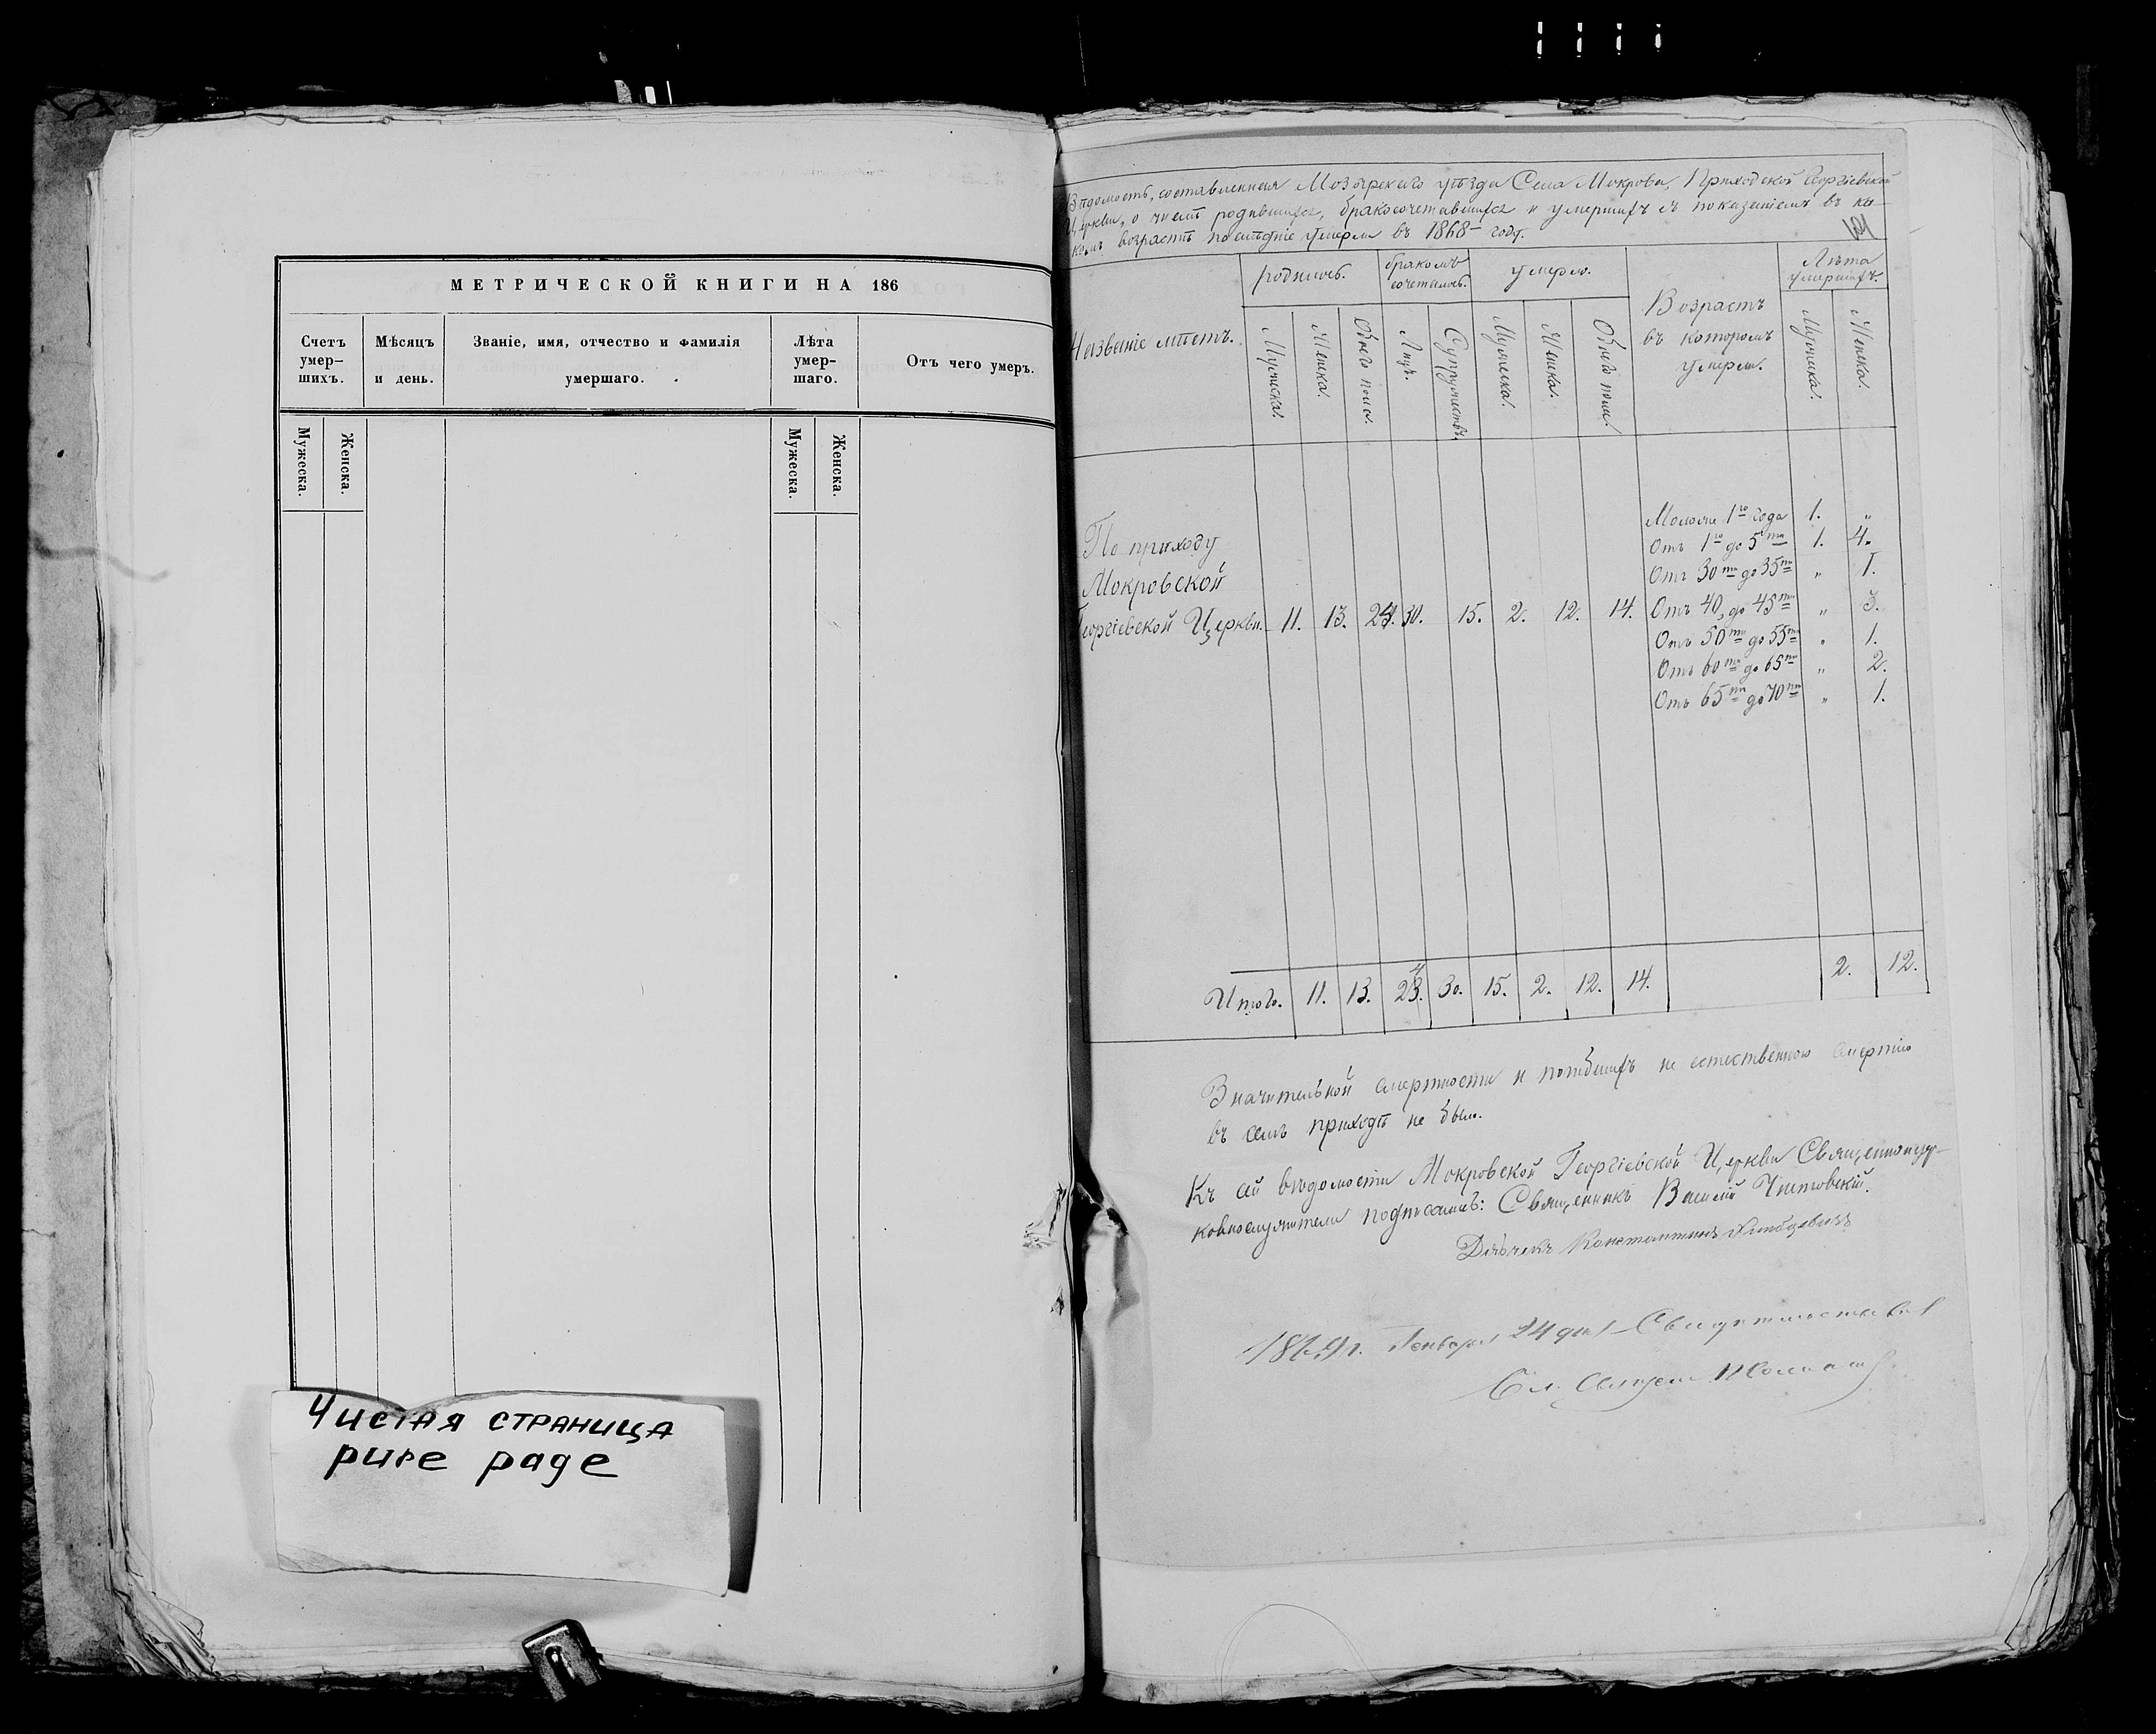 МЕТРИЧЕСКОЙ КНИГИ НА 186
Счетъ умер– шихъ.
Мѣсяцъ и день.
Званіе, имя, отчество и фамилія умершаго.
Лѣта умер– шаго.
Отъ чего умеръ.
Мужеска.
Женска.
Мужеска.
Женска.
Чистая страница
pure page
Вѣдомость, составленная Мозырскаго уѣзда Села Мокрова, Приходской Георгіевской
Церкви, о числѣ родившихся, бракосочетавшихся и умершихъ съ показаніемъ въ ка–
комъ возрастѣ послѣдніе умерли въ 1868 – году.
Названіе мѣстъ.
родилось.
бракомъ сочеталось.
умерло.
Возрастъ въ которомъ умерли.
Лѣта умершихъ.
Мужеска.
Женска.
Обоего пола.
Лицъ.
Супружествъ.
Мужеска.
Женска.
Обоего пола.
Мужеска.
Женска.
Моложе 1го года 1. „
Отъ 1го до 5ти 1. 4.
Отъ 30ти до 35ти „ 1.
По приходу
Мокровской
Георгіевской Церкви. 11. 13. 24. 30. 15. 2. 12. 14. Отъ 40, до 45ти „ 3.
Отъ 50ти до 55ти „ 1.
Отъ 60ти до 65ти „ 2.
Отъ 65ти до 70ти „ 1.
Итого. 11. 13. 24. 30. 15. 2. 12. 14. 2. 12.
Значительной смертности и погибшихъ не естественною смертію
въ семъ приходѣ не было.
Къ сей вѣдомости Мокровской Георгіевской Церкви Священноцер–
ковнослужители подписались: Священникъ Василій
Дьячекъ Константинъ
1869 г. Января 24 дня Свидѣтельствовалъ